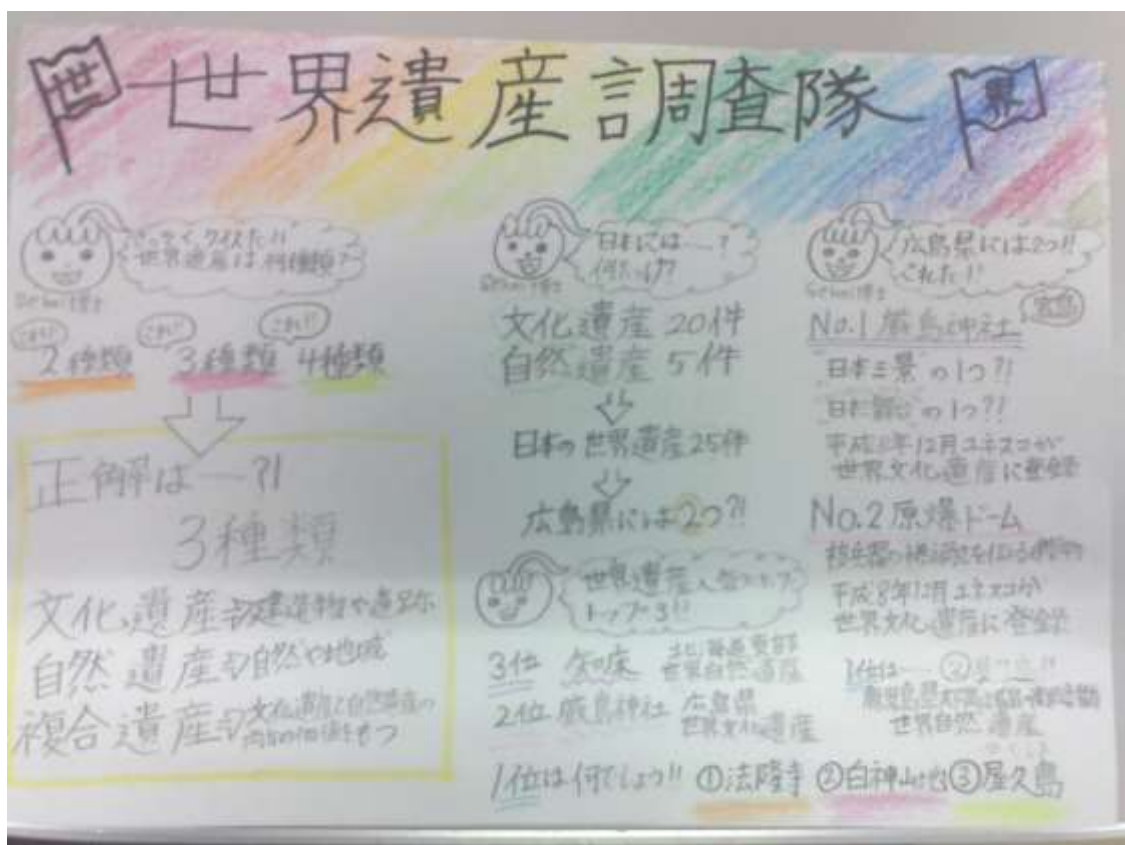 世
世界遺産調査隊
界
さっそく、クイズだ!!
世界遺産は何種類?
これ!!
これ!!
これ!!
2種類 3種類 4種類
正解は一?!
3種類
文化遺産⇨建造物や遺跡
自然遺産⇨自然や地域
複合遺産⇨文化遺産と自然遺産の
両方の価値をもつ
日本には〜?
何だっけ?
文化遺産 20件
自然遺産 5件
日本の世界遺産25件
広島県には2つ?!
世界遺産人気
トップ3!!
3位 知床 北海道東部
世界自然遺産
2位 厳島神社 広島県
世界文化遺産
1位は何でしょう!! ①法隆寺 ②白神山地 ③屋久島
広島県には2つ!!
これだ!!
No.1 厳島神社
宮島
日本三景の1つ?!
の1つ?!
平成8年12月ユネスコが
世界文化遺産に登録
No.2 原爆ドーム
平成8年12月ユネスコが
世界文化遺産に登録
1位は
鹿児島県
世界自然遺産